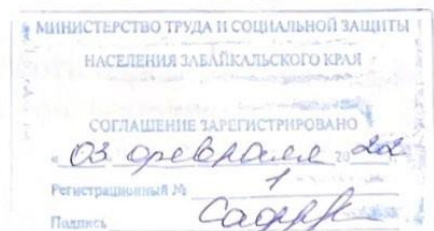 МИНИСТЕРСТВО ТРУДА И СОЦИАЛЬНОЙ ЗАЩИТЫ
НАСЕЛЕНИЯ ЗАБАЙКАЛЬСКОГО КРАЯ
СОГЛАШЕНИЕ ЗАРЕГИСТРИРОВАНО
« 03 февраля 20 22
Регистрационный № 1
Подпись